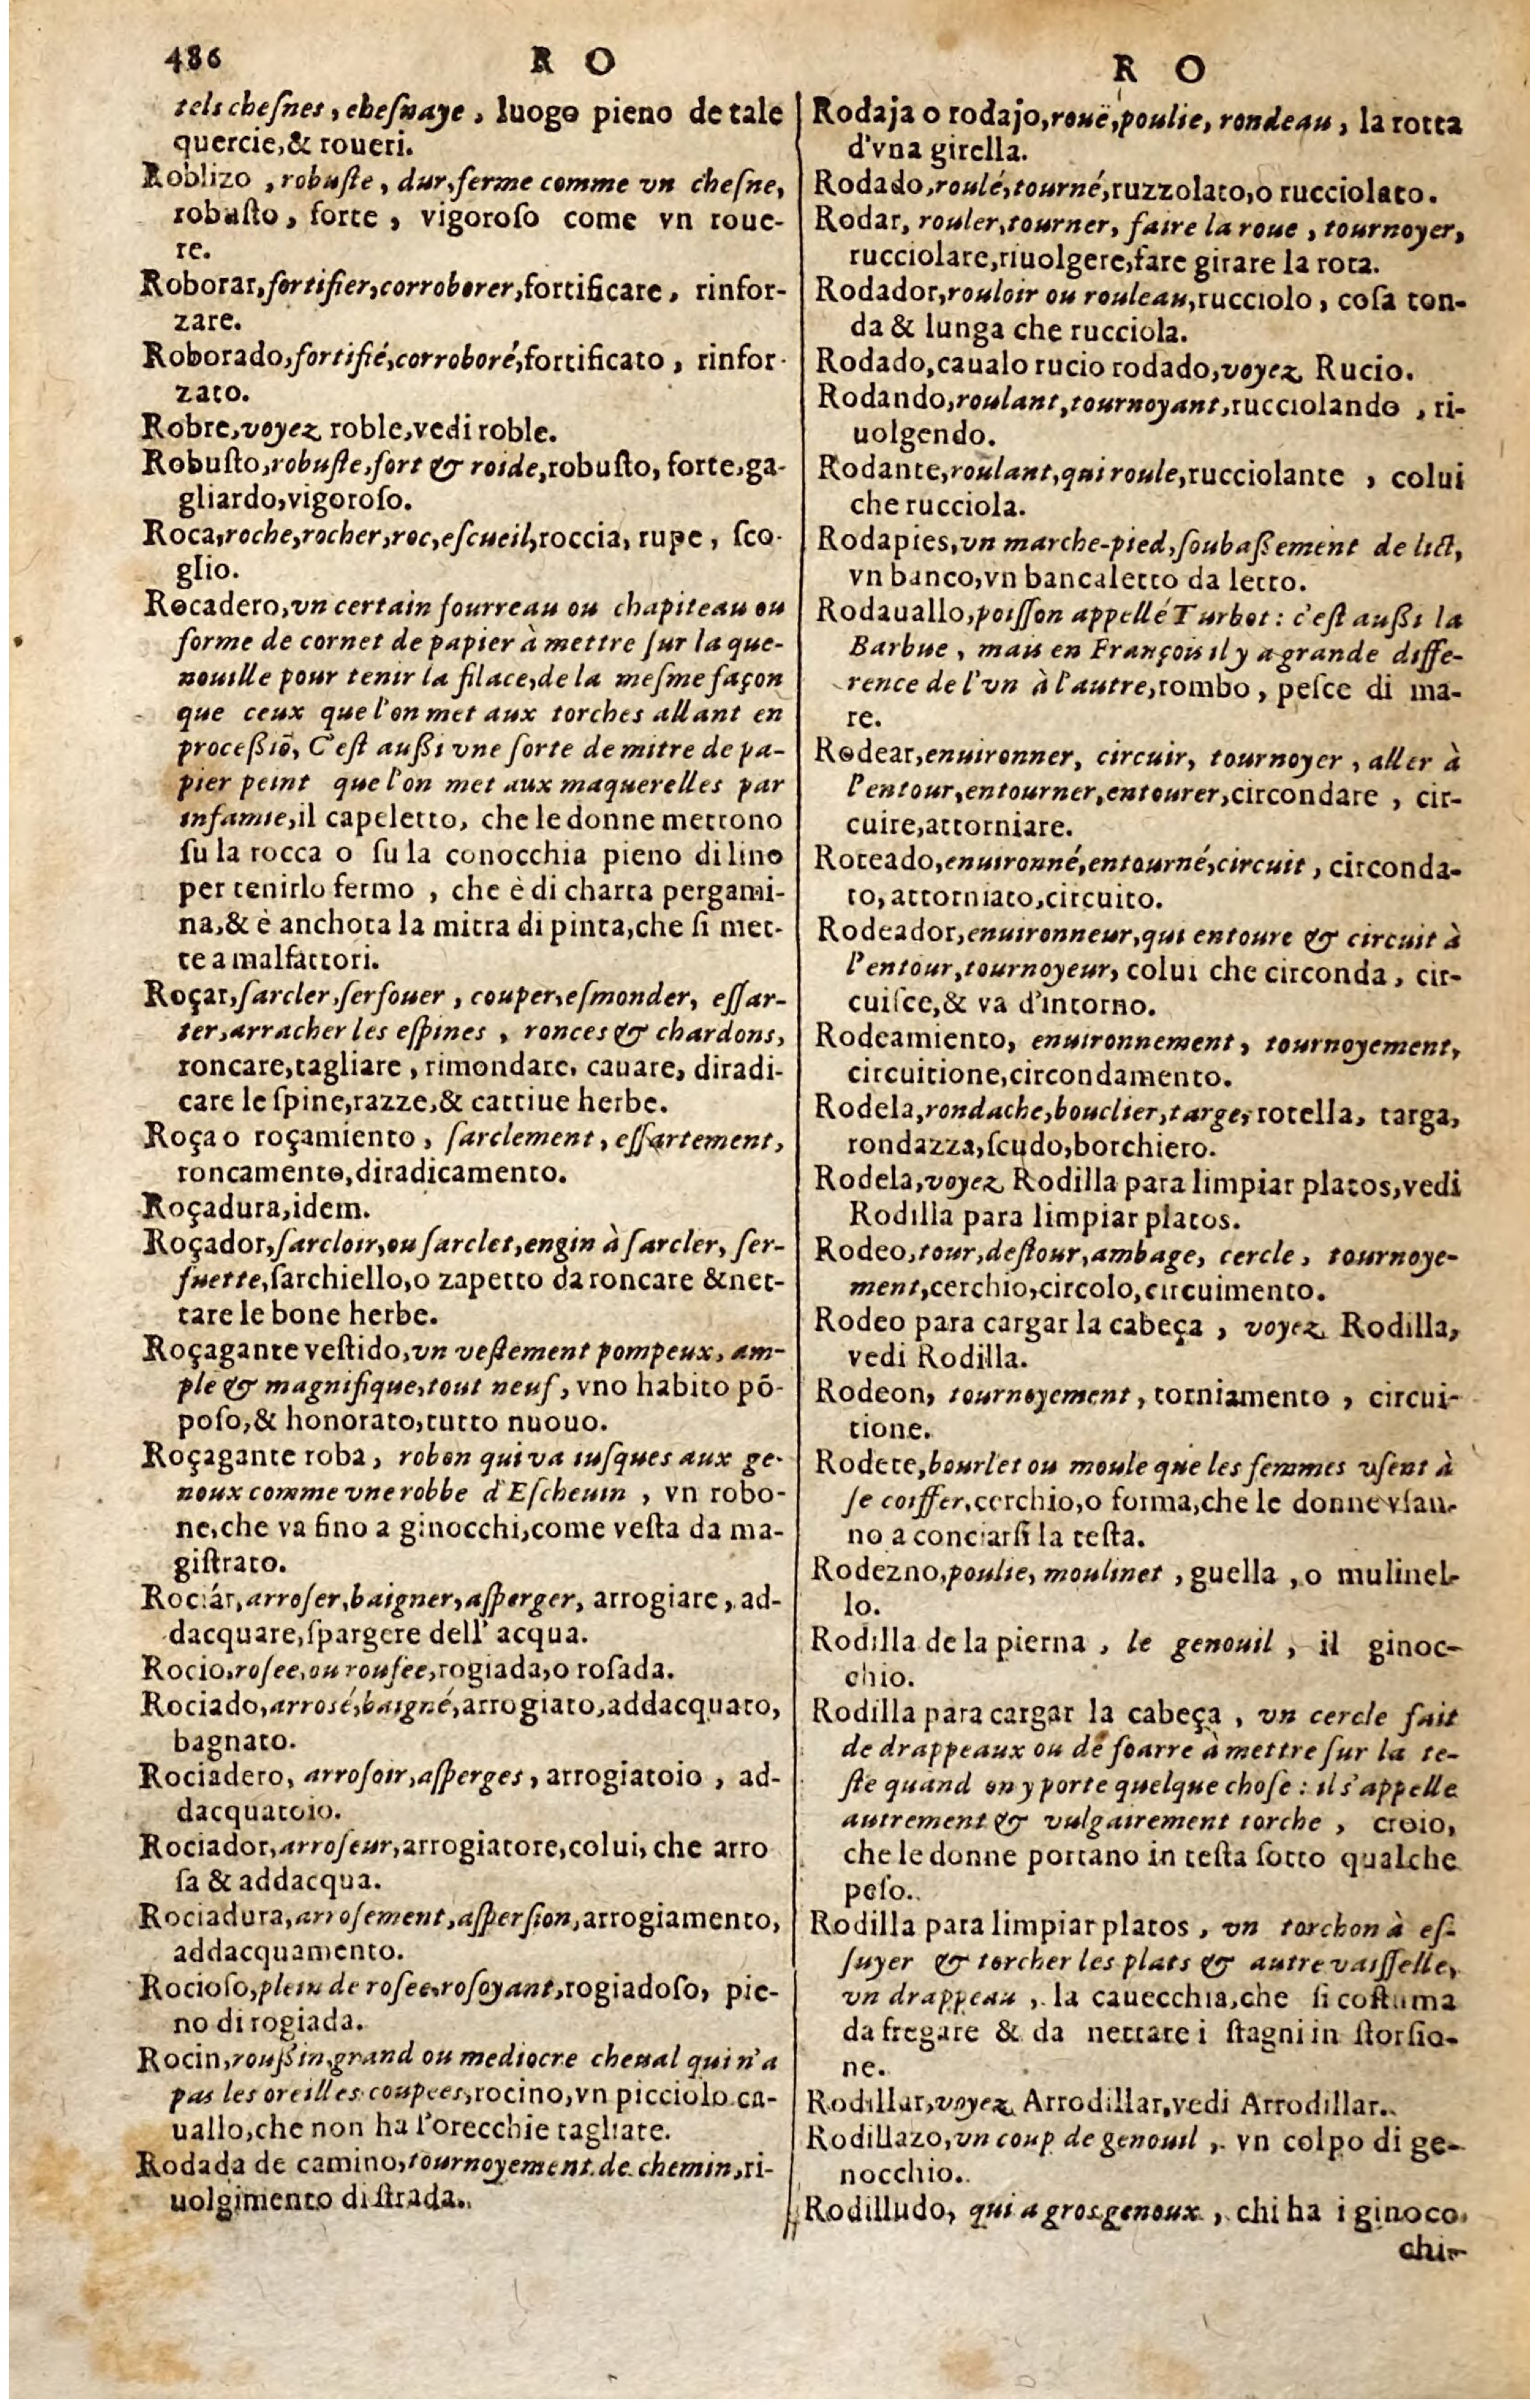 486 R O
tels chesnes, chesnaye, luogo pieno de tale
quercie,& roueri.
Roblizo, robuste, dur,ferme comme vn chesne,
robusto, forte, vigoroso come vn roue-
re.
Roborar,fortifier,corroborer,fortificare, rinfor-
zare.
Roborado,fortifié,corroboré,fortificato, rinfor-
zato.
Robre,voyez roble,vedi roble.
Robusto,robuste,fort & roide,robusto, forte,ga-
gliardo,vigoroso.
Roca,roche,rocher,roc,escueil,roccia, rupe, sco-
glio.
Rocadero,vn certain fourreau ou chapiteau ou
forme de cornet de papier à mettre sur la que-
nouille pour tenir la filace,de la mesme façon
que ceux que l'on met aux torches allant en
processiō, C'est aussi vne sorte de mitre de pa-
pier peint que l'on met aux maquerelles par
infamie,il capeletto, che le donne mettono
su la rocca o su la conocchia pieno di lino
per tenirlo fermo, che è di charta pergami-
na,& è anchora la mitra di pinta,che si met-
te a malfattori.
Roçar,sarcler,serfouer, couper,esmonder, essar-
ter,arracher les espines, ronces & chardons,
roncare,tagliare, rimondare, cauare, diradi-
care le spine,razze,& cattiue herbe.
Roça o roçamiento, sarclement, essartement,
roncamento,diradicamento.
Roçadura,idem.
Roçador,sarcloir,ou sarclet,engin à sarcler, ser-
fuette,sarchiello,o zapetto da roncare & net-
tare le bone herbe.
Roçagante vestido,vn vestement pompeux, am-
ple & magnifique,tout neuf, vno habito pō-
poso,& honorato,tutto nuouo.
Roçagante roba, robon qui va iusques aux ge-
noux comme vne robbe d'Escheuin, vn robo-
ne,che va fino a ginocchi,come vesta da ma-
gistrato.
Rociár,arroser,baigner,asperger, arrogiare, ad-
dacquare,spargere dell' acqua.
Rocio,rosee,ou rousee,rogiada,o rosada.
Rociado,arrosé,baigné,arrogiato,addacquato,
bagnato.
Rociadero, arrosoir,asperges, arrogiatoio, ad-
dacquatoio.
Rociador,arroseur,arrogiatore,colui, che arro
sa & addacqua.
Rociadura,arrosement,aspersion,arrogiamento,
addacquamento.
Rocioso,plein de rosee,rosoyant,rogiadoso, pie-
no di rogiada.
Rocin,roussin,grand ou mediocre cheual qui n'a
pas les oreilles coupees,rocino,vn picciolo ca-
uallo,che non ha l'orecchie tagliate.
Rodada de camino,tournoyement de chemin,ri-
uolgimento di strada.
R O
Rodaja o rodajo,rouë,poulie, rondeau, la rotta
d'vna girella.
Rodado,roulé,tourné,ruzzolato,o rucciolato.
Rodar, rouler,tourner, faire la roue, tournoyer,
rucciolare,riuolgere,fare girare la rota.
Rodador,rouloir ou rouleau,rucciolo, cosa ton-
da & lunga che rucciola.
Rodado,caualo rucio rodado,voyez Rucio.
Rodando,roulant,tournoyant,rucciolando, ri-
uolgendo.
Rodante,roulant,qui roule,rucciolante, colui
che rucciola.
Rodapies,vn marche-pied,soubassement de lict,
vn banco,vn bancaletto da letto.
Rodauallo,poisson appellé Turbot: c'est aussi la
Barbue, mais en François il y a grande diffe-
rence de l'vn à l'autre,rombo, pesce di ma-
re.
Rodear,enuironner, circuir, tournoyer, aller à
l'entour,entourner,entourer,circondare, cir-
cuire,attorniare.
Roteado,enuironné,entourné,circuit, circonda-
to, attorniato,circuito.
Rodeador,enuironneur,qui entoure & circuit à
l'entour,tournoyeur, colui che circonda, cir-
cuisce,& va d'intorno.
Rodeamiento, enuironnement, tournoyement,
circuitione,circondamento.
Rodela,rondache,bouclier,targe, rotella, targa,
rondazza,scudo,borchiero.
Rodela,voyez Rodilla para limpiar platos,vedi
Rodilla para limpiar platos.
Rodeo,tour,destour,ambage, cercle, tournoye-
ment,cerchio,circolo,circuimento.
Rodeo para cargar la cabeça, voyez Rodilla,
vedi Rodilla.
Rodeon, tournoyement, torniamento, circui-
tione.
Rodete,bourlet ou moule que les femmes vsent à
se coiffer,cerchio,o forma,che le donne vsan-
no a conciarsi la testa.
Rodezno,poulie, moulinet, guella, o mulinel-
lo.
Rodilla de la pierna, le genouil, il ginoc-
chio.
Rodilla para cargar la cabeça, vn cercle fait
de drappeaux ou de foarre à mettre sur la te-
ste quand on y porte quelque chose: il s'appelle
autrement & vulgairement torche, croio,
che le donne portano in testa sotto qualche
peso.
Rodilla para limpiar platos, vn torchon à es-
suyer & torcher les plats & autre vaisselle,
vn drappeau, la cauecchia,che si costuma
da fregare & da nettare i stagni in storsio-
ne.
Rodillar,voyez Arrodillar,vedi Arrodillar.
Rodillazo,vn coup de genouil, vn colpo di ge-
nocchio.
Rodilludo, qui a gros genoux, chi ha i ginoco
chi-